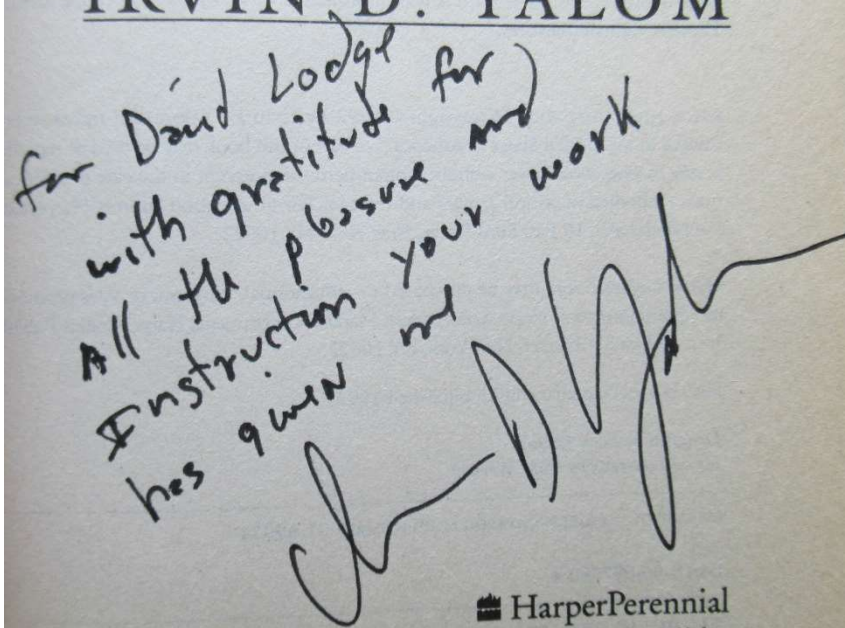 IRVIN D. YALOM
for David Lodge
with gratitude for
All the pleasure and
Instruction your work
has given me
HarperPerennial